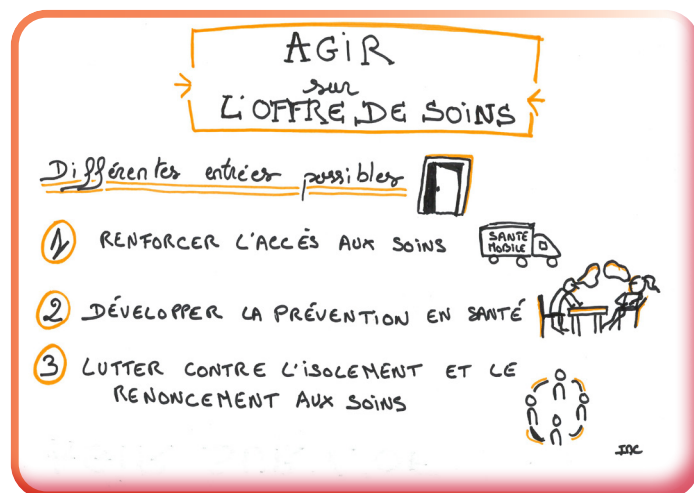 AGIR
sur
L'OFFRE DE SOINS
Différentes entrées possibles
1 RENFORCER L'ACCÈS AUX SOINS
SANTÉ
MOBILE
2 DÉVELOPPER LA PRÉVENTION EN SANTÉ
3 LUTTER CONTRE L'ISOLEMENT ET LE
RENONCEMENT AUX SOINS